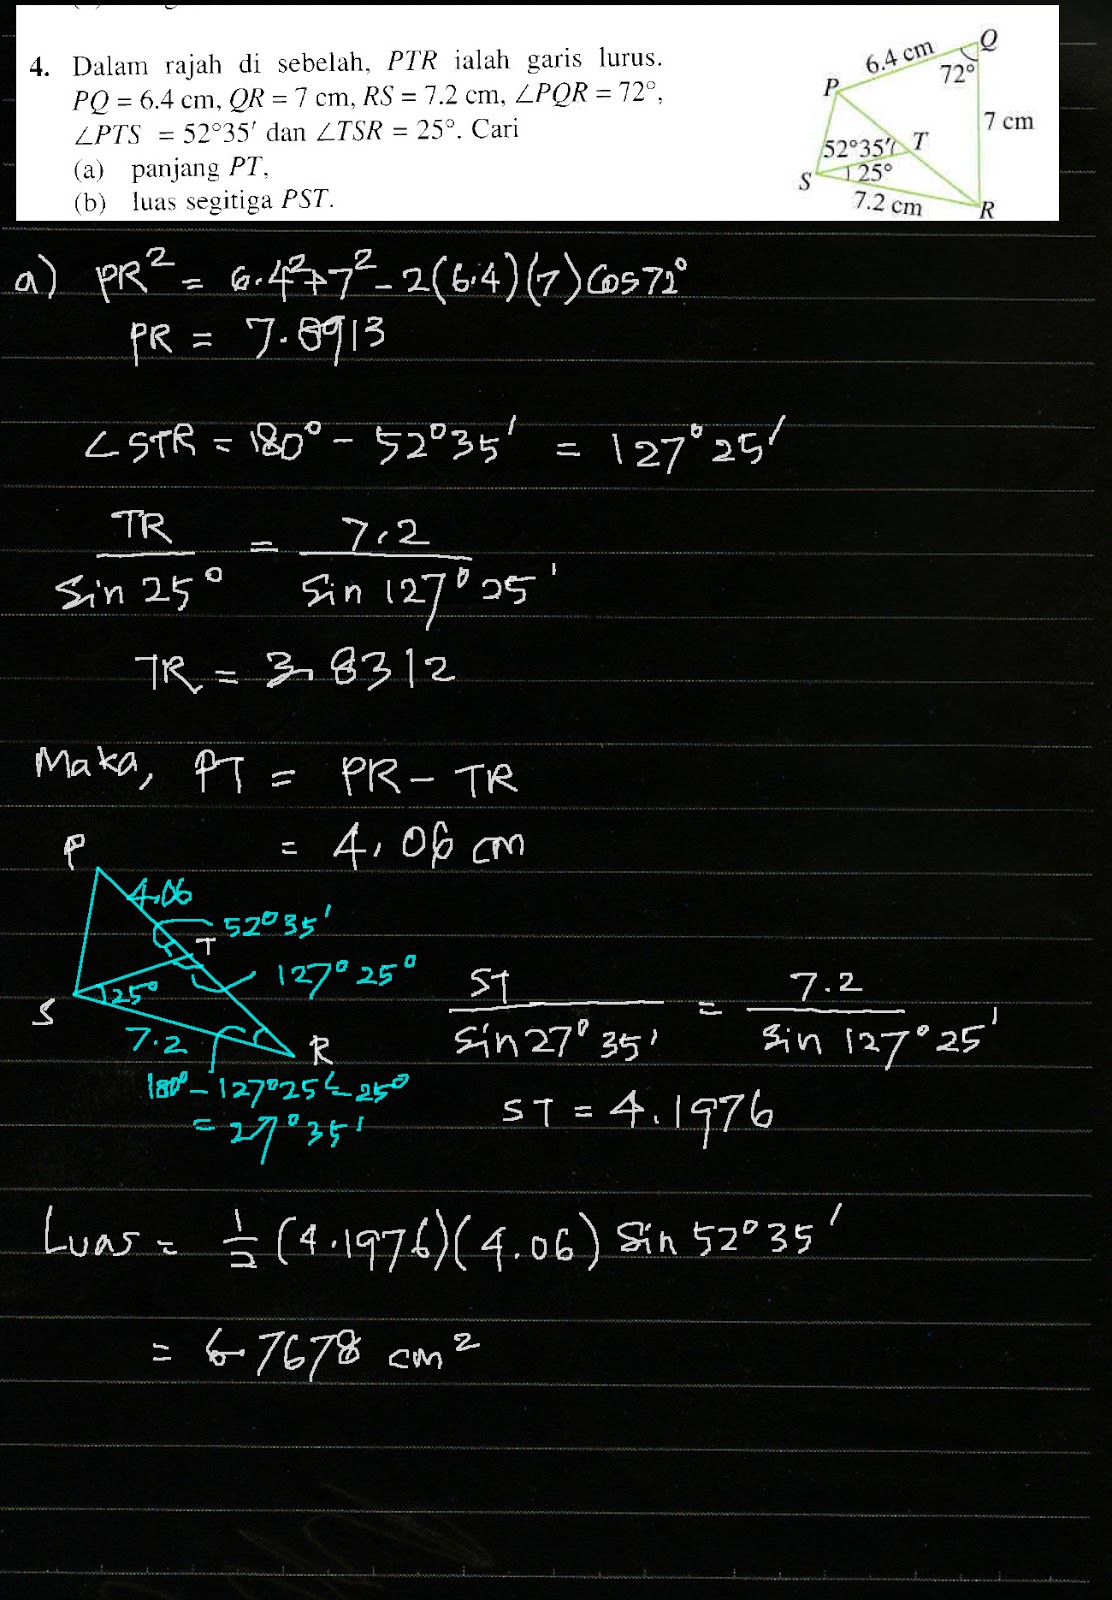 4. Dalam rajah di sebelah, PTR ialah garis lurus.
PQ = 6.4 cm, QR = 7 cm, RS = 7.2 cm, ∠PQR = 72°,
∠PTS = 52°35′ dan ∠TSR = 25°. Cari
(a) panjang PT,
(b) luas segitiga PST.
Q
6.4 cm
72°
P
7 cm
52°35′
T
S
25°
7.2 cm
R
a) PR² = 6.4²+7²-2(6.4)(7)Cos72°
PR = 7.8913
∠STR = 180° - 52°35' = 127°25'
TR/sin 25° = 7.2/sin 127°25'
TR = 3.8312
Maka, PT = PR - TR
= 4.06 cm
P
4.06
52°35'
T
127°25°
S
25°
7.2
R
180° - 127°25' - 25°
= 27°35'
ST/sin27°35' = 7.2/sin 127°25'
ST = 4.1976
Luas = 1/2 (4.1976)(4.06) Sin 52°35'
= 6.7678 cm²